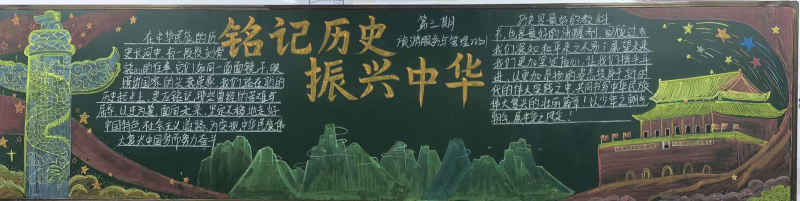 铭记历史
振兴中华
第三期
旅游服务与管理2251
在中华民族的历
史长河中,有一段段刻骨
铭心的往事,它们如同一面面镜子,映
照出国家的兴衰荣辱。我们站在新的
历史起点上,更应铭记那些曾经的苦难与
辉煌,以史为鉴,面向未来,坚定不移地走好
中国特色社会主义道路,为实现中华民族伟
大复兴中国梦而努力奋斗
历史是最好的教科
书,也是最好的清醒剂,回顾过去
我们深知和平来之不易;展望未来
我们更加坚定信心,让我们携手并
进,以更加昂扬的姿态投身于新时
代的伟大实践之中,共同书写中华民族
伟大复兴的壮丽篇章!以少年之